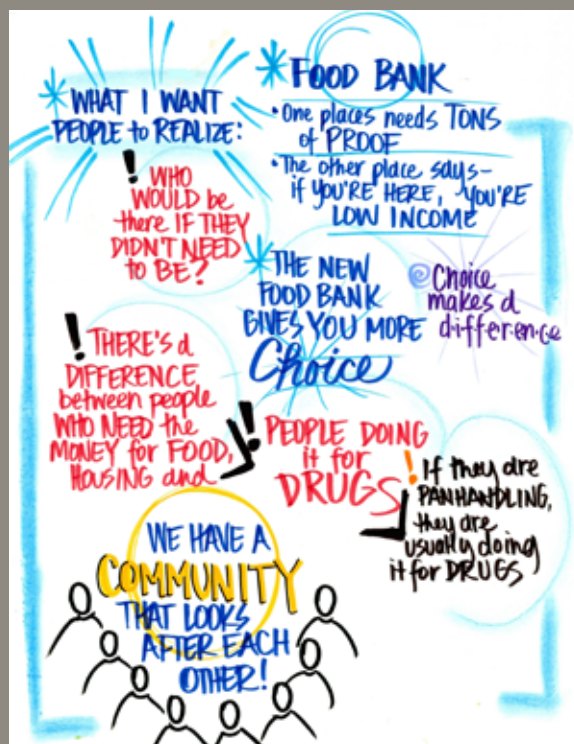 * WHAT I WANT
PEOPLE to REALIZE:
! WHO
WOULD be
there IF THEY
DIDN'T NEED
to BE?
* FOOD BANK
• One places needs TONS
of PROOF
• The other place says-
if YOU'RE HERE, YOU'RE
LOW INCOME
* THE NEW
FOOD BANK
GIVES YOU MORE
Choice
Choice
makes a
difference
! THERE'S a
DIFFERENCE
between people
WHO NEED the
MONEY for FOOD,
HOUSING and
! PEOPLE DOING
it for
DRUGS
! If they are
PANHANDLING,
they are
usually doing
it for DRUGS
WE HAVE A
COMMUNITY
THAT LOOKS
AFTER EACH
OTHER!